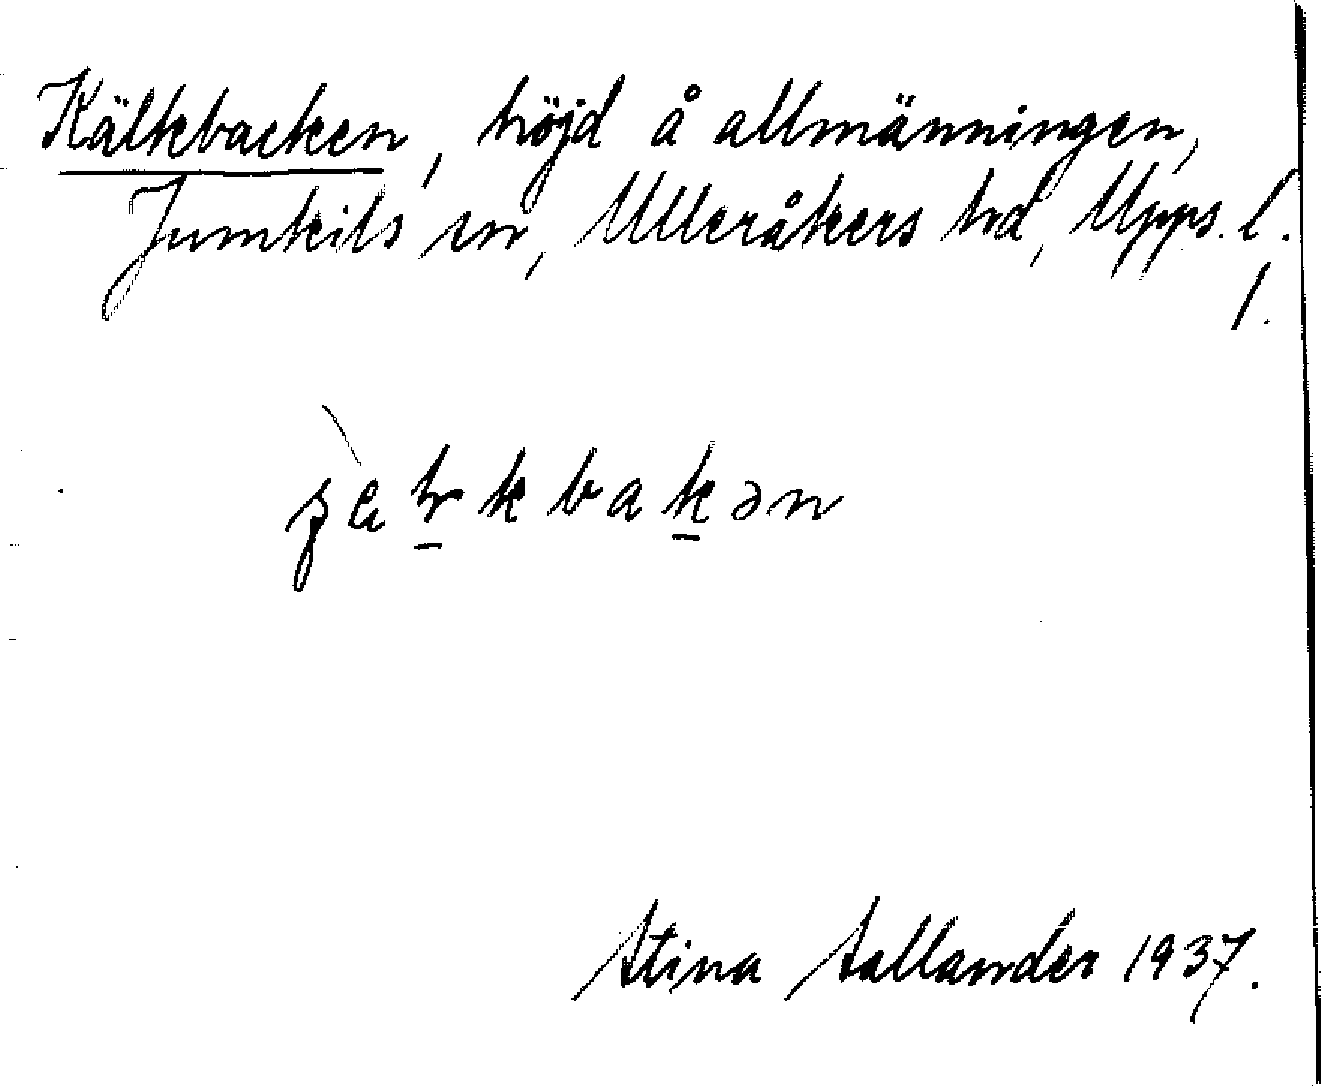 Kälkbacken, höjd å allmänningen,
Jumkils sn, Ulleråkers hd, Upps. l.
1.
Stina Sallander 1937.